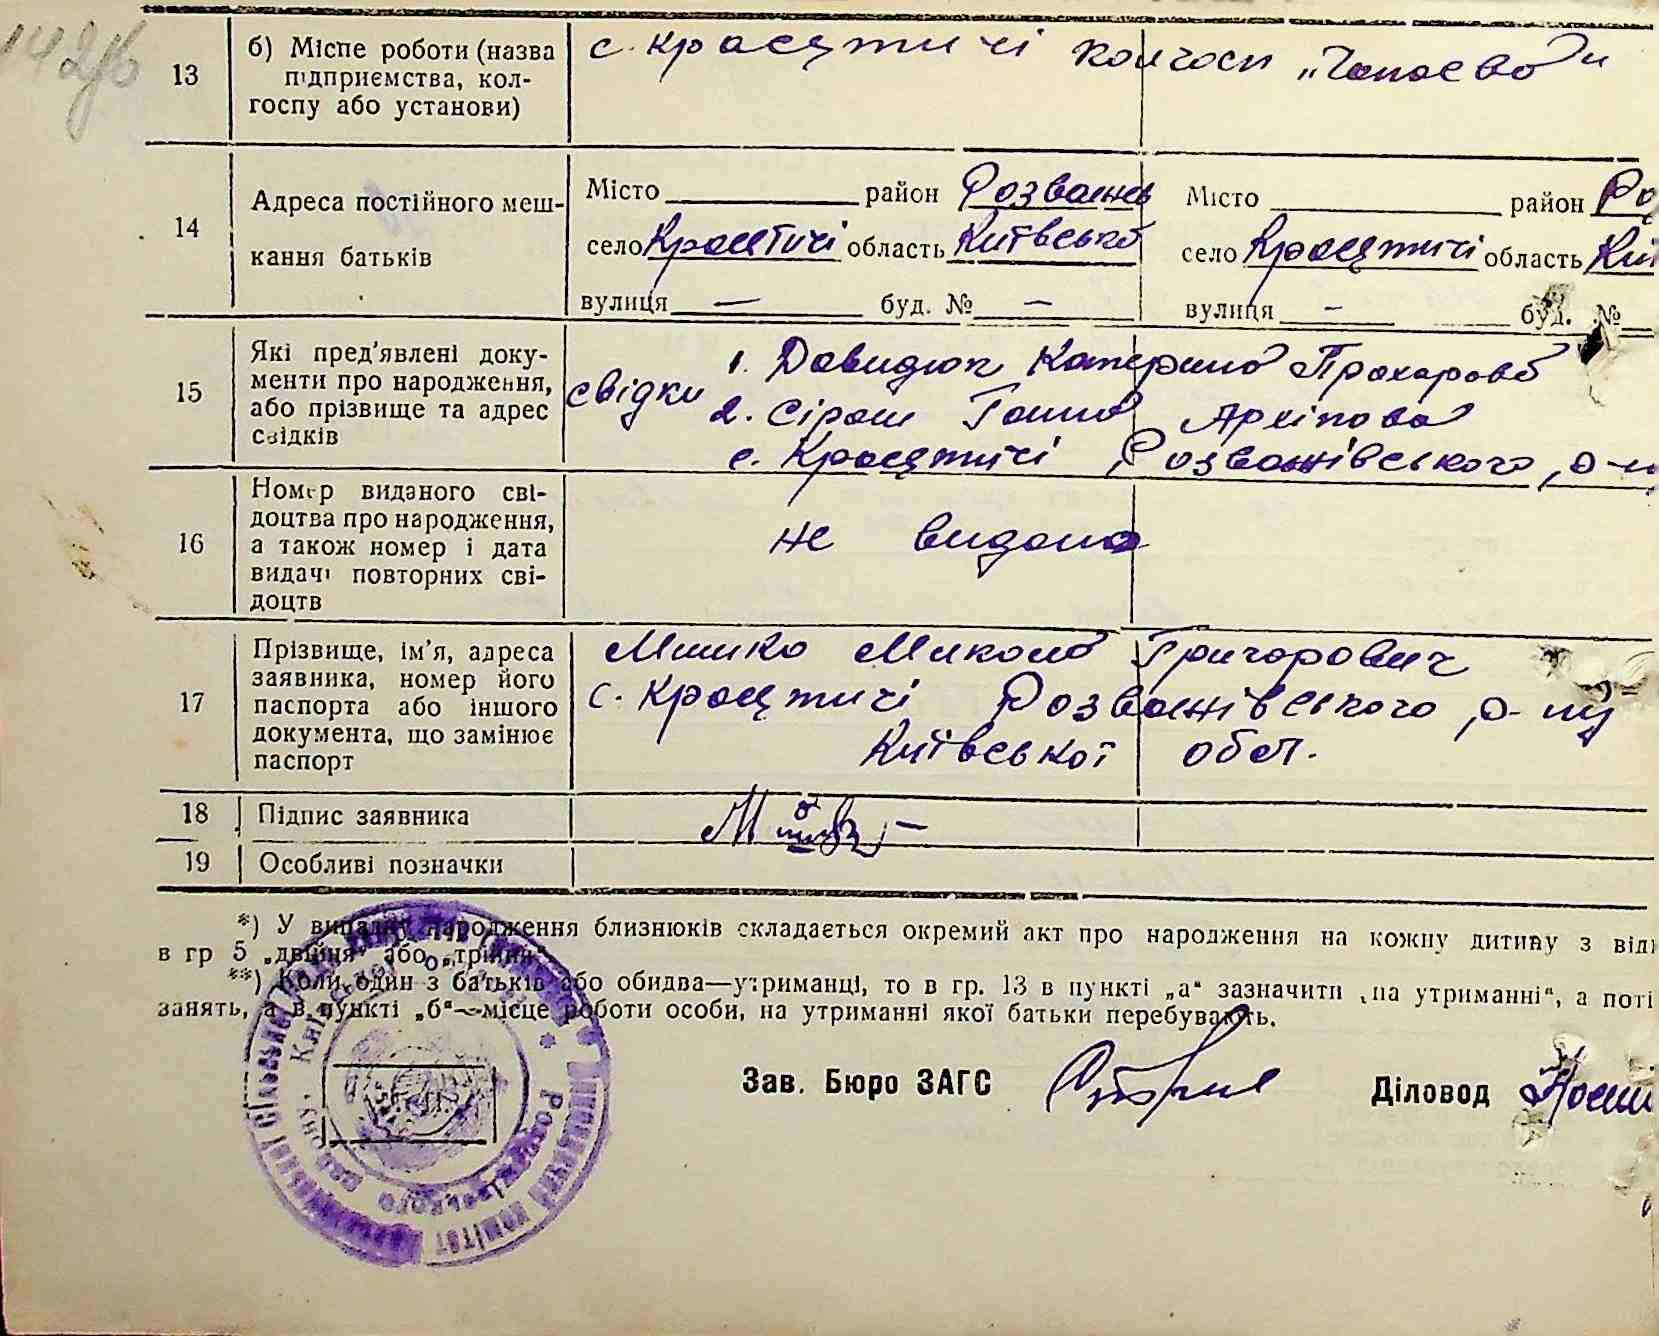 13 б) Місце роботи (назва підприємства, колгоспу або установи) с. Красятичі колгосп „Чапаєва"
14 Адреса постійного мешкання батьків
Місто район Розважів Місто район Ро
село Красятичі область Київська село Красятичі область Киї
вулиця — буд. № — вулиця — буд. №
15 Які пред'явлені документи про народження, або прізвище та адрес свідків
свідки 1. Давидюк Катерина Прохаровa
2. Сіраш Ганна Архіпова
с. Красятичі Розважівського р-н
16 Номер виданого свідоцтва про народження, а також номер і дата видачі повторних свідоцтв
не видано
17 Прізвище, ім'я, адреса заявника, номер його паспорта або іншого документа, що замінює паспорт
Микола Григорович
с. Красятичі Розважівського р-ну
Київської обл.
18 Підпис заявника
19 Особливі позначки
*) У випадку народження близнюків складається окремий акт про народження на кожну дитину з від
в гр 5 „двійня" або „трійня"
**) Коли один з батьків або обидва—утриманці, то в гр. 13 в пункті „а" зазначити „на утриманні", а поті
занять, а в пункті „б"—місце роботи особи, на утриманні якої батьки перебувають.
Зав. Бюро ЗАГС Діловод